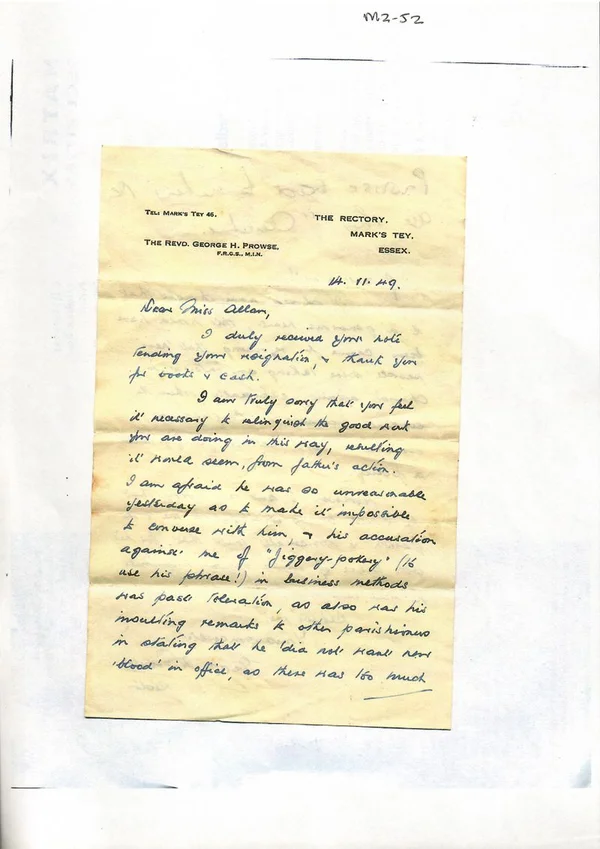 M2-52
TEL: MARK'S TEY 46.
THE REVD. GEORGE H. PROWSE.
F.R.G.S., M.I.N.
THE RECTORY.
MARK'S TEY.
ESSEX.
14. 11. 49.
Dear Miss Allan,
I duly received your note
tending your resignation, & thank you
for books & cash.
I am truly sorry that you feel
it necessary to relinquish the good work
you are doing in this way, resulting
it would seem, from father's action.
I am afraid he was so unreasonable
yesterday as to made it impossible
to converse with him, & his accusation
against me of "Jiggery-pokery" (to
use his phrase!) in business methods
was past toleration, as also was his
insulting remarks to other parishioners
in stating that he 'did not want new
'blood' in office, as there was too much